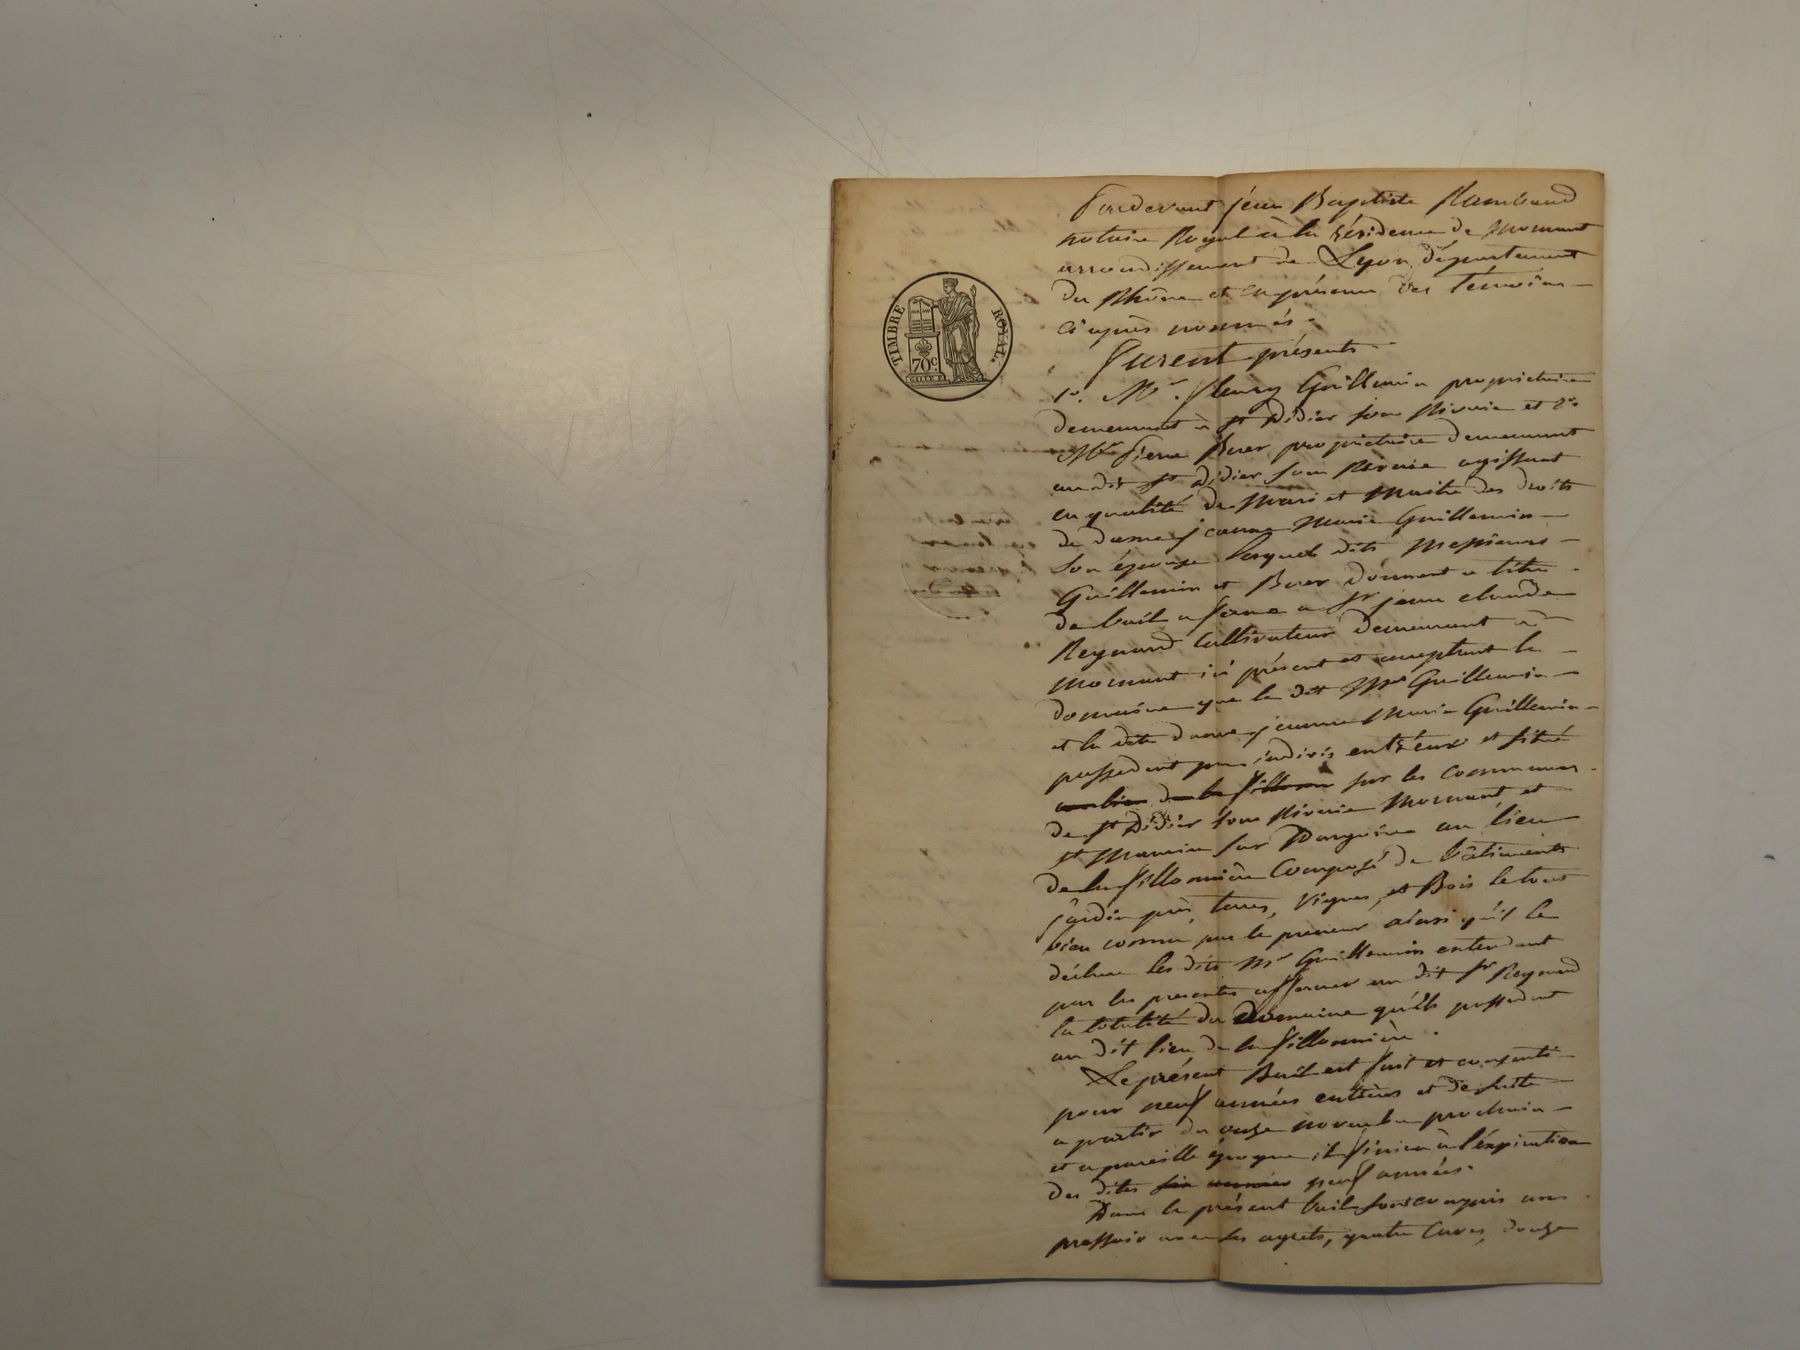 TIMBRE ROYAL.
70c
Pardevant jean Baptiste Rambaud
notaire Royal à la résidence de Mornant
arrondissement de Lyon, département
du Rhône et en présence des témoins
ci après nommés.
Furent présents
1o. Mr. fleury Guillermin propriétaire
demeurant à st Didier sous Riverie et 2o
Mr pierre Buer propriétaire demeurant
au dit st Didier sous Riverie agissant
en qualité de Mari et Maitre des droits
de dame jeanne Marie Guillermin
son épouse lesquels dits Messieurs
Guillermin et Buer donnent a titre
de bail a ferme a sr jean claude
Reynard Cultivateur demeurant à
Mornant ici présent et acceptant le
domaine que le dit Mr Guillermin
et la dite dame jeanne Marie Guillermin
possedent par indivis entr'eux et situé
au lieu de la fillonnière sur les communes
de st Didier sous Riverie Mornant, et
st Maurice sur Dargoire au lieu
de la fillonnière Composé de bâtiments
jardin prés, terres, Vignes, et Bois le tout
bien connu par le preneur ainsi qu'il le
déclare les dits Mrs Guillermin entendant
par les presentes affermer au dit sr Reynard
la totalité du Domaine qu'ils possedent
au dit lieu de la fillonnière.
Le présent Bail est fait et consenti
pour neuf années entières et de suite
a partir du onze novembre prochain
et a pareille époque il finira à l'expiration
des dites six années neuf années.
Dans le présent bail sont compris un
pressoir avec ses agrets, quatre Cuves, douze